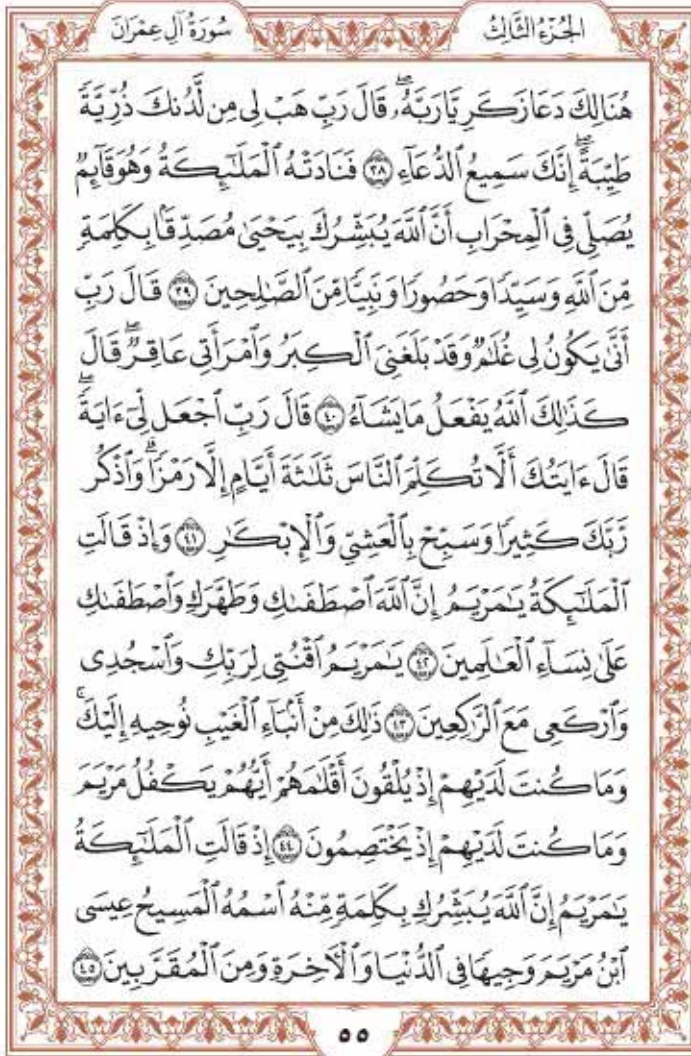 الجُزْءُ الثَّالِثُ
سُورَةُ آلِ عِمْرَانَ
هُنَالِكَ دَعَا زَكَرِيَّا رَبَّهُۥۖ قَالَ رَبِّ هَبْ لِى مِن لَّدُنكَ ذُرِّيَّةً
طَيِّبَةًۖ إِنَّكَ سَمِيعُ ٱلدُّعَآءِ ٣٨ فَنَادَتْهُ ٱلْمَلَٰٓئِكَةُ وَهُوَ قَآئِمٌ
يُصَلِّى فِى ٱلْمِحْرَابِ أَنَّ ٱللَّهَ يُبَشِّرُكَ بِيَحْيَىٰ مُصَدِّقًۢا بِكَلِمَةٍ
مِّنَ ٱللَّهِ وَسَيِّدًا وَحَصُورًا وَنَبِيًّا مِّنَ ٱلصَّٰلِحِينَ ٣٩ قَالَ رَبِّ
أَنَّىٰ يَكُونُ لِى غُلَٰمٌ وَقَدْ بَلَغَنِىَ ٱلْكِبَرُ وَٱمْرَأَتِى عَاقِرٌۖ قَالَ
كَذَٰلِكَ ٱللَّهُ يَفْعَلُ مَا يَشَآءُ ٤٠ قَالَ رَبِّ ٱجْعَل لِّىٓ ءَايَةًۖ
قَالَ ءَايَتُكَ أَلَّا تُكَلِّمَ ٱلنَّاسَ ثَلَٰثَةَ أَيَّامٍ إِلَّا رَمْزًاۗ وَٱذْكُر
رَّبَّكَ كَثِيرًا وَسَبِّحْ بِٱلْعَشِىِّ وَٱلْإِبْكَٰرِ ٤١ وَإِذْ قَالَتِ
ٱلْمَلَٰٓئِكَةُ يَٰمَرْيَمُ إِنَّ ٱللَّهَ ٱصْطَفَىٰكِ وَطَهَّرَكِ وَٱصْطَفَىٰكِ
عَلَىٰ نِسَآءِ ٱلْعَٰلَمِينَ ٤٢ يَٰمَرْيَمُ ٱقْنُتِى لِرَبِّكِ وَٱسْجُدِى
وَٱرْكَعِى مَعَ ٱلرَّٰكِعِينَ ٤٣ ذَٰلِكَ مِنْ أَنۢبَآءِ ٱلْغَيْبِ نُوحِيهِ إِلَيْكَۚ
وَمَا كُنتَ لَدَيْهِمْ إِذْ يُلْقُونَ أَقْلَٰمَهُمْ أَيُّهُمْ يَكْفُلُ مَرْيَمَ
وَمَا كُنتَ لَدَيْهِمْ إِذْ يَخْتَصِمُونَ ٤٤ إِذْ قَالَتِ ٱلْمَلَٰٓئِكَةُ
يَٰمَرْيَمُ إِنَّ ٱللَّهَ يُبَشِّرُكِ بِكَلِمَةٍ مِّنْهُ ٱسْمُهُ ٱلْمَسِيحُ عِيسَى
ٱبْنُ مَرْيَمَ وَجِيهًا فِى ٱلدُّنْيَا وَٱلْءَاخِرَةِ وَمِنَ ٱلْمُقَرَّبِينَ ٤٥
٥٥